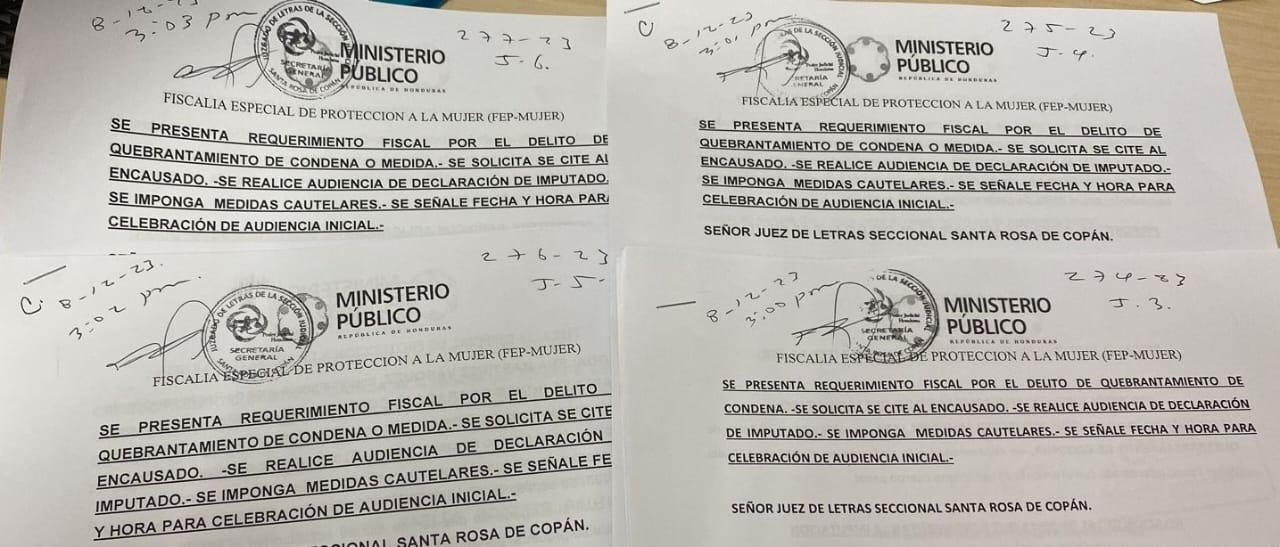 8-12-23
3:03 pm
277-23
J-6.
JUZGADO DE LETRAS DE LA SECCIÓN JUDICIAL
Poder Judicial
Honduras
SECRETARÍA
GENERAL
SANTA ROSA DE COPÁN
MINISTERIO
PÚBLICO
REPÚBLICA DE HONDURAS
FISCALIA ESPECIAL DE PROTECCION A LA MUJER (FEP-MUJER)
SE PRESENTA REQUERIMIENTO FISCAL POR EL DELITO DE
QUEBRANTAMIENTO DE CONDENA O MEDIDA.- SE SOLICITA SE CITE AL
ENCAUSADO. -SE REALICE AUDIENCIA DE DECLARACIÓN DE IMPUTADO.
SE IMPONGA MEDIDAS CAUTELARES.- SE SEÑALE FECHA Y HORA PARA
CELEBRACIÓN DE AUDIENCIA INICIAL.-
C
8-12-23
3:01 pm
275-23
J-4.
DE LA SECCIÓN JUDICIAL
Poder Judicial
Honduras
RETARÍA
GENERAL
DE COPÁN
MINISTERIO
PÚBLICO
REPÚBLICA DE HONDURAS
FISCALIA ESPECIAL DE PROTECCION A LA MUJER (FEP-MUJER)
SE PRESENTA REQUERIMIENTO FISCAL POR EL DELITO DE
QUEBRANTAMIENTO DE CONDENA O MEDIDA.- SE SOLICITA SE CITE AL
ENCAUSADO. -SE REALICE AUDIENCIA DE DECLARACIÓN DE IMPUTADO.-
SE IMPONGA MEDIDAS CAUTELARES.- SE SEÑALE FECHA Y HORA PARA
CELEBRACIÓN DE AUDIENCIA INICIAL.-
SEÑOR JUEZ DE LETRAS SECCIONAL SANTA ROSA DE COPÁN.
C.
8-12-23.
3:02 pm.
276-23
J-5-
JUZGADO DE LETRAS DE LA SECCIÓN JUDICIAL
Poder Judicial
Honduras
SECRETARÍA
GENERAL
SANTA ROSA DE COPÁN
MINISTERIO
PÚBLICO
REPÚBLICA DE HONDURAS
FISCALIA ESPECIAL DE PROTECCION A LA MUJER (FEP-MUJER)
SE PRESENTA REQUERIMIENTO FISCAL POR EL DELITO
QUEBRANTAMIENTO DE CONDENA O MEDIDA.- SE SOLICITA SE CITE
ENCAUSADO. -SE REALICE AUDIENCIA DE DECLARACIÓN
IMPUTADO.- SE IMPONGA MEDIDAS CAUTELARES.- SE SEÑALE FE
Y HORA PARA CELEBRACIÓN DE AUDIENCIA INICIAL.-
CCIONAL SANTA ROSA DE COPÁN.
8-12-23
3:00 pm
274-23
J.3.
DE LA SECCIÓN JUDICIAL
SECRETARÍA
GENERAL
MINISTERIO
PÚBLICO
REPÚBLICA DE HONDURAS
FISCALIA ESPECIAL DE PROTECCION A LA MUJER (FEP-MUJER)
SE PRESENTA REQUERIMIENTO FISCAL POR EL DELITO DE QUEBRANTAMIENTO DE
CONDENA. -SE SOLICITA SE CITE AL ENCAUSADO. -SE REALICE AUDIENCIA DE DECLARACIÓN
DE IMPUTADO.- SE IMPONGA MEDIDAS CAUTELARES.- SE SEÑALE FECHA Y HORA PARA
CELEBRACIÓN DE AUDIENCIA INICIAL.-
SEÑOR JUEZ DE LETRAS SECCIONAL SANTA ROSA DE COPÁN.